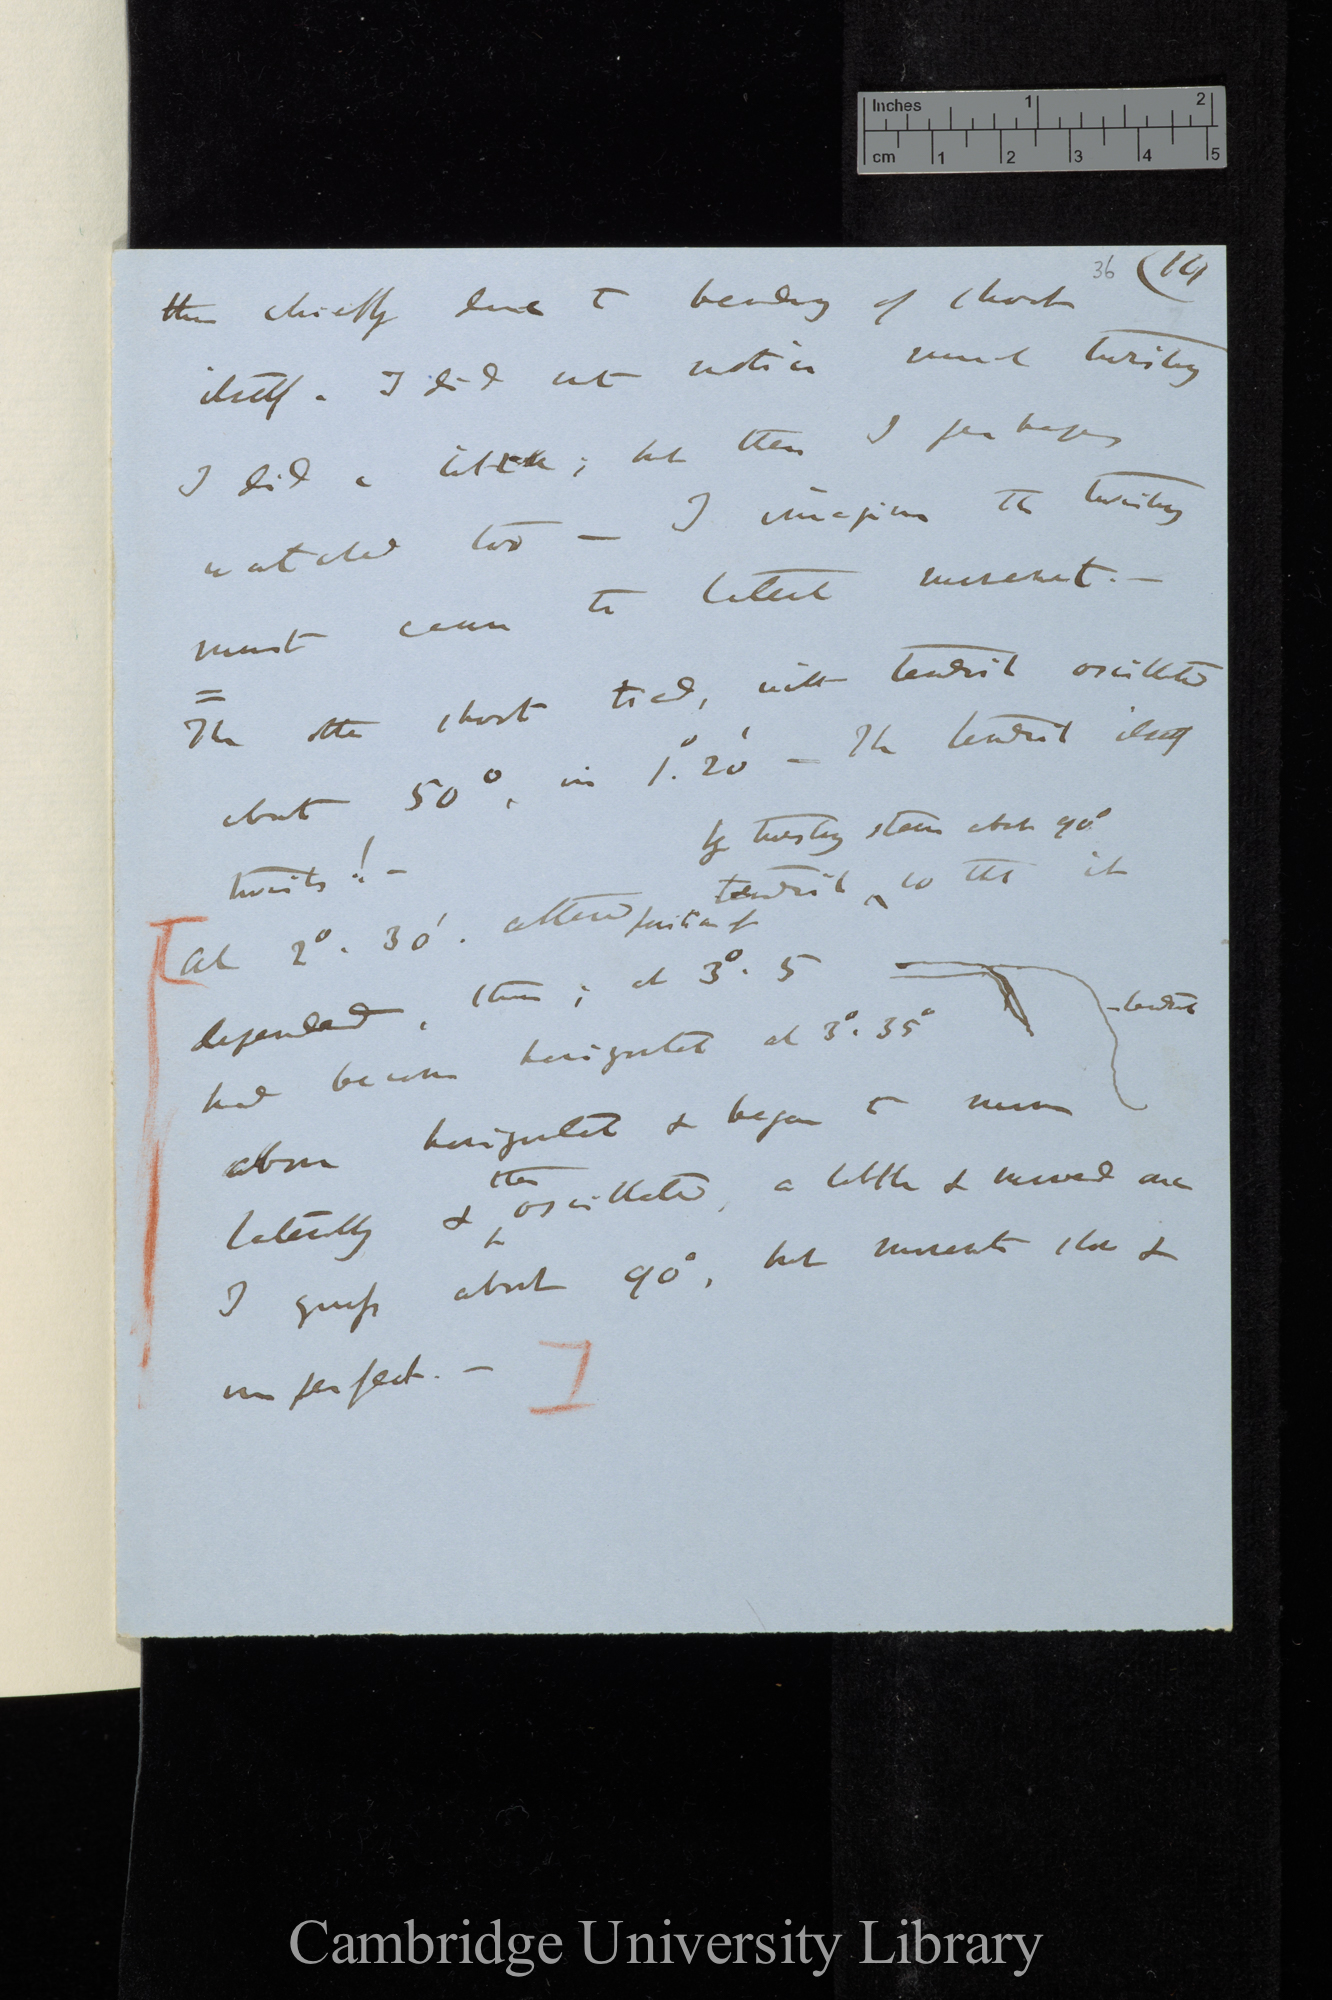 Inches 1 2
cm 1 2 3 4 5
36 (14
then chiefly due to bending of shoot
itself. I did not notice much twisting
I did a little; but then I perhaps
watched two — I imagine the twisting
must cause the lateral movement. —
=
The other shoot tied, with tendril oscillated
about 50°, in 1°. 20' — The tendril itself
twists! —
by twisting stem about 90°
At 2°. 30'. altered position of tendril ^ so that it
depended, thus; at 3°. 5
— tendril
had become horizontal at 3°. 35°
above horizontal & began to move
then
laterally & ^ oscillated, a little & moved over
I guess about 90°, but movements slow &
imperfect. —
Cambridge University Library